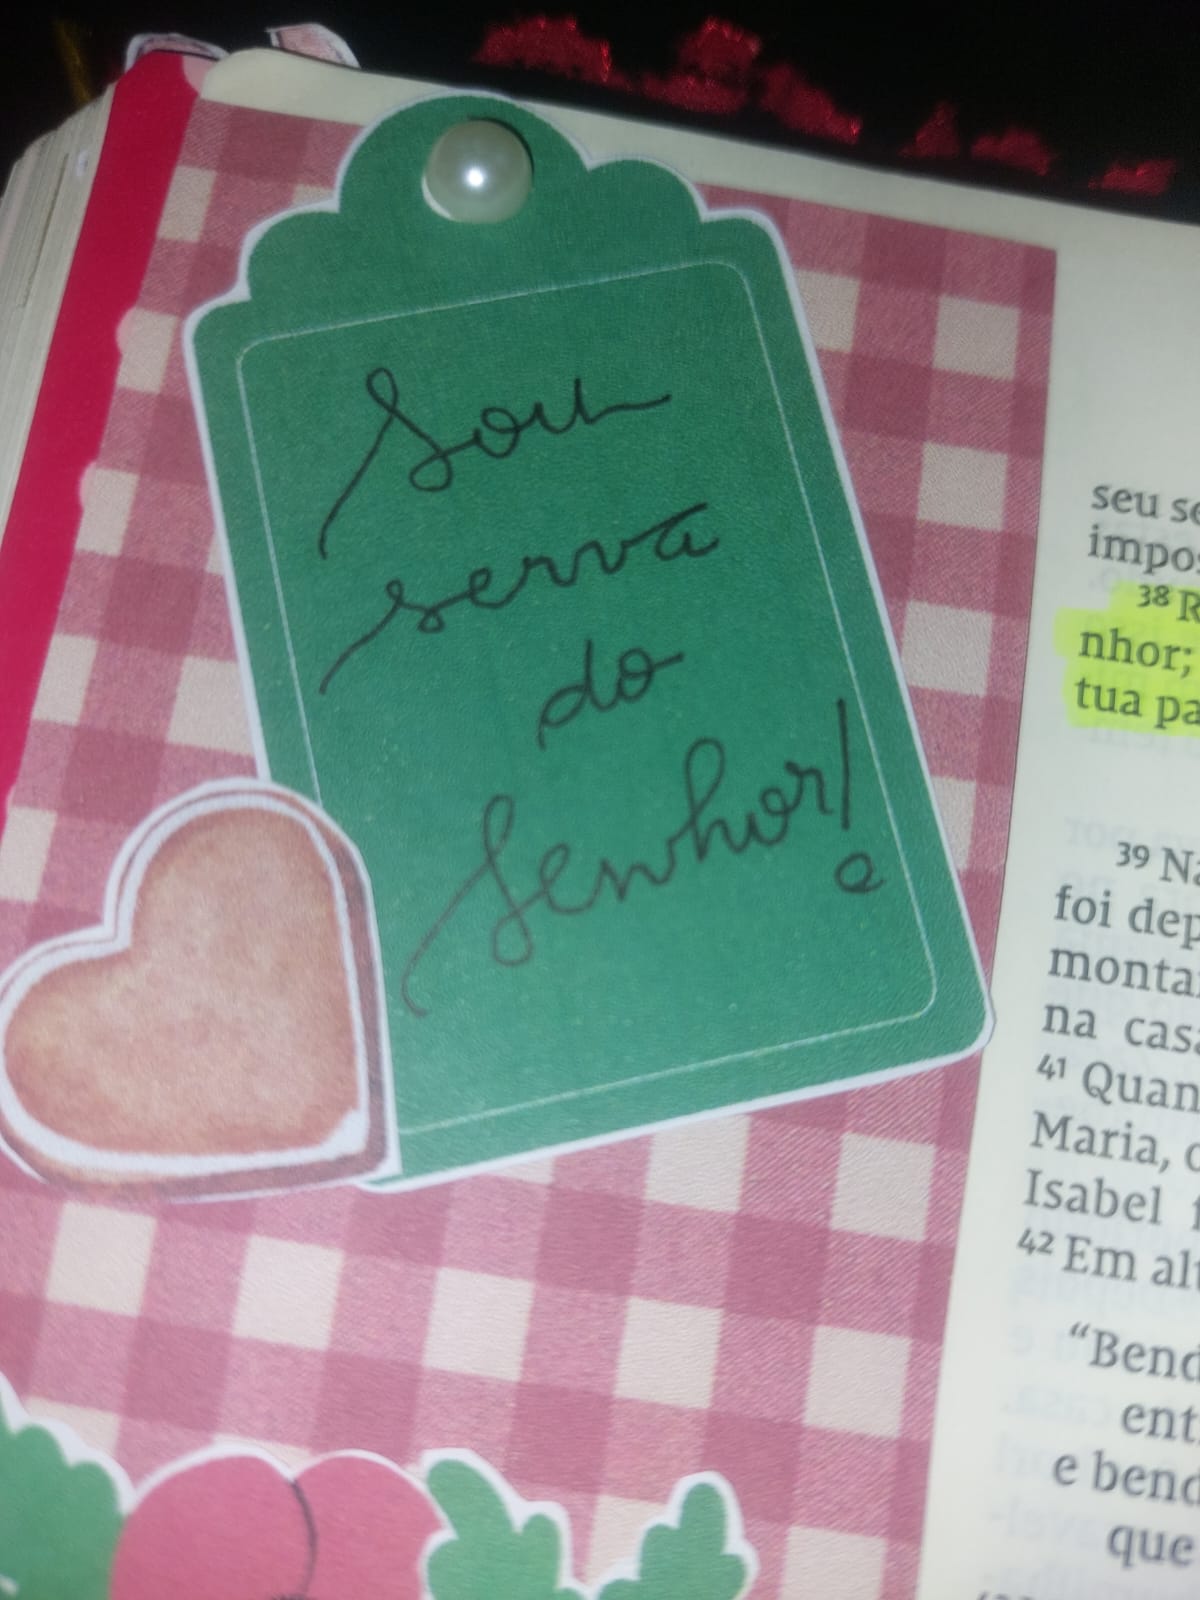 Sou
serva
do
Senhor!
seu se
impos
38 R
nhor;
tua pa
39 Na
foi dep
monta
na casa
41 Quan
Maria, c
Isabel f
42 Em alt
“Bend
ent
e bend
que